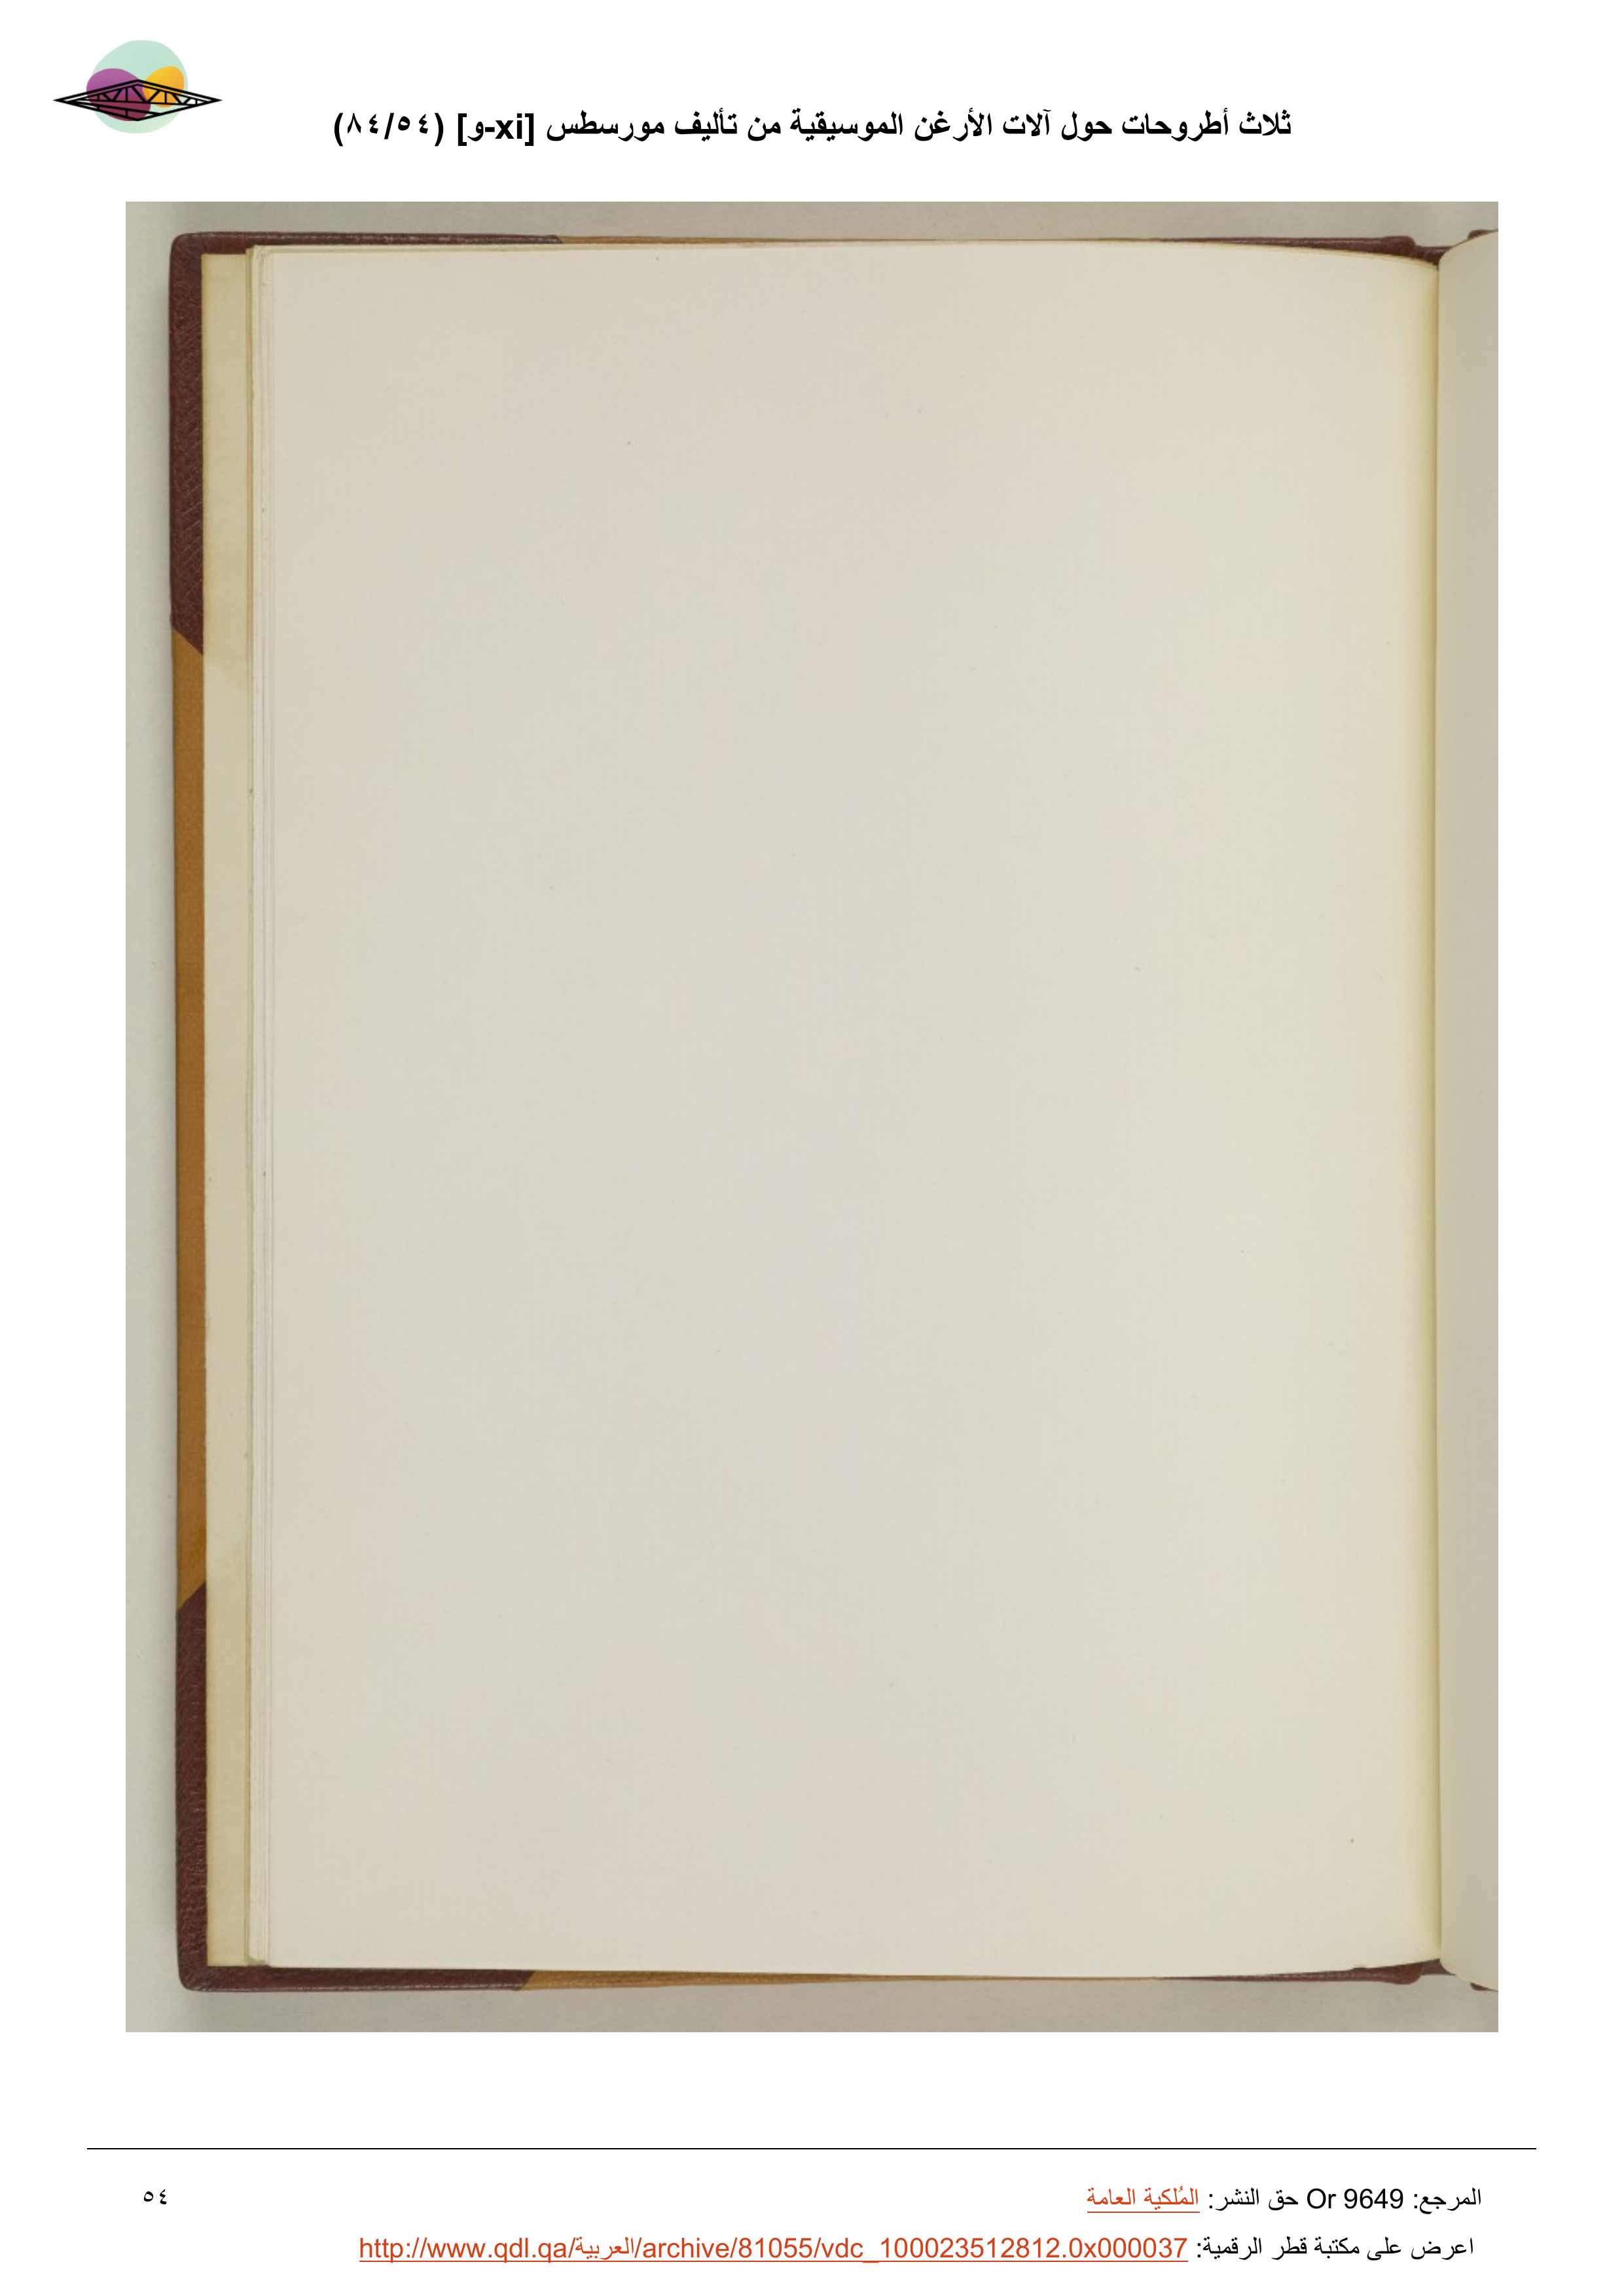 ثلاث أطروحات حول آلات الأرغن الموسيقية من تأليف مورسطس [xi-و] (٨٤/٥٤)
المرجع: Or 9649 حق النشر: المُلكية العامة
٥٤
اعرض على مكتبة قطر الرقمية: http://www.qdl.qa/العربية/archive/81055/vdc_100023512812.0x000037